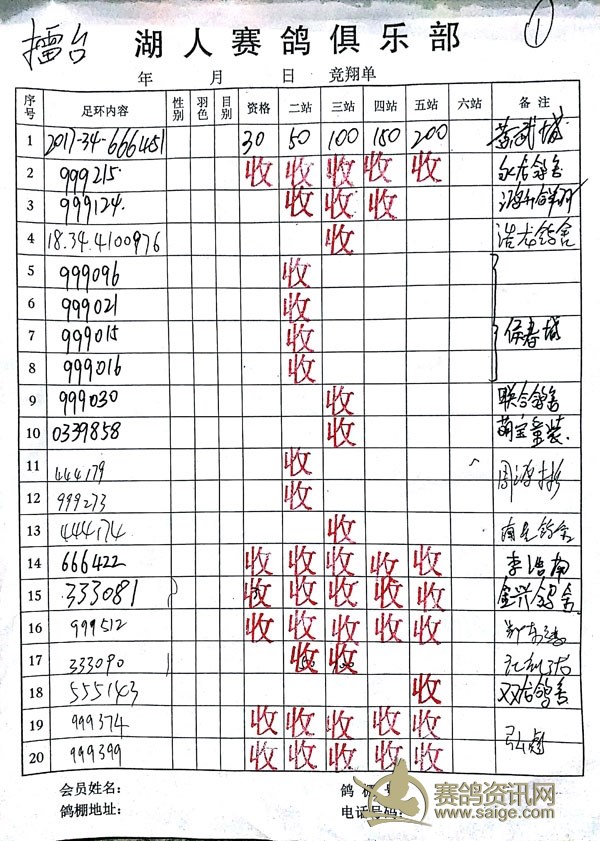 擂台 湖人赛鸽俱乐部 ①
年 月 日 竞翔单
序号 足环内容 性别 羽色 目别 资格 二站 三站 四站 五站 六站 备注
1 2017-34-666451 30 50 100 150 200
2 999215 收 收 收 收 收
3 999124 收 收 收
4 18.34.4100976 收 浩龙鸽舍
5 999096 收
6 999021 收
7 999015 收 侯春城
8 999016 收
9 999030 收 联合鸽舍
10 0339858 收 萌宝童装
11 444179 收 周源彬
12 999273 收
13 444174 收
14 666422 收 收 收 收 收 李浩南
15 333081 收 收 收 收 收 金兴鸽舍
16 999512 收 收 收 收 收
17 333090 收 收
18 555143 收 双龙鸽舍
19 999374 收 收 收 收 收
20 999399 收 收 收 收 收
会员姓名: 鸽棚号
鸽棚地址: 电话号码:
赛鸽资讯网
www.saige.com